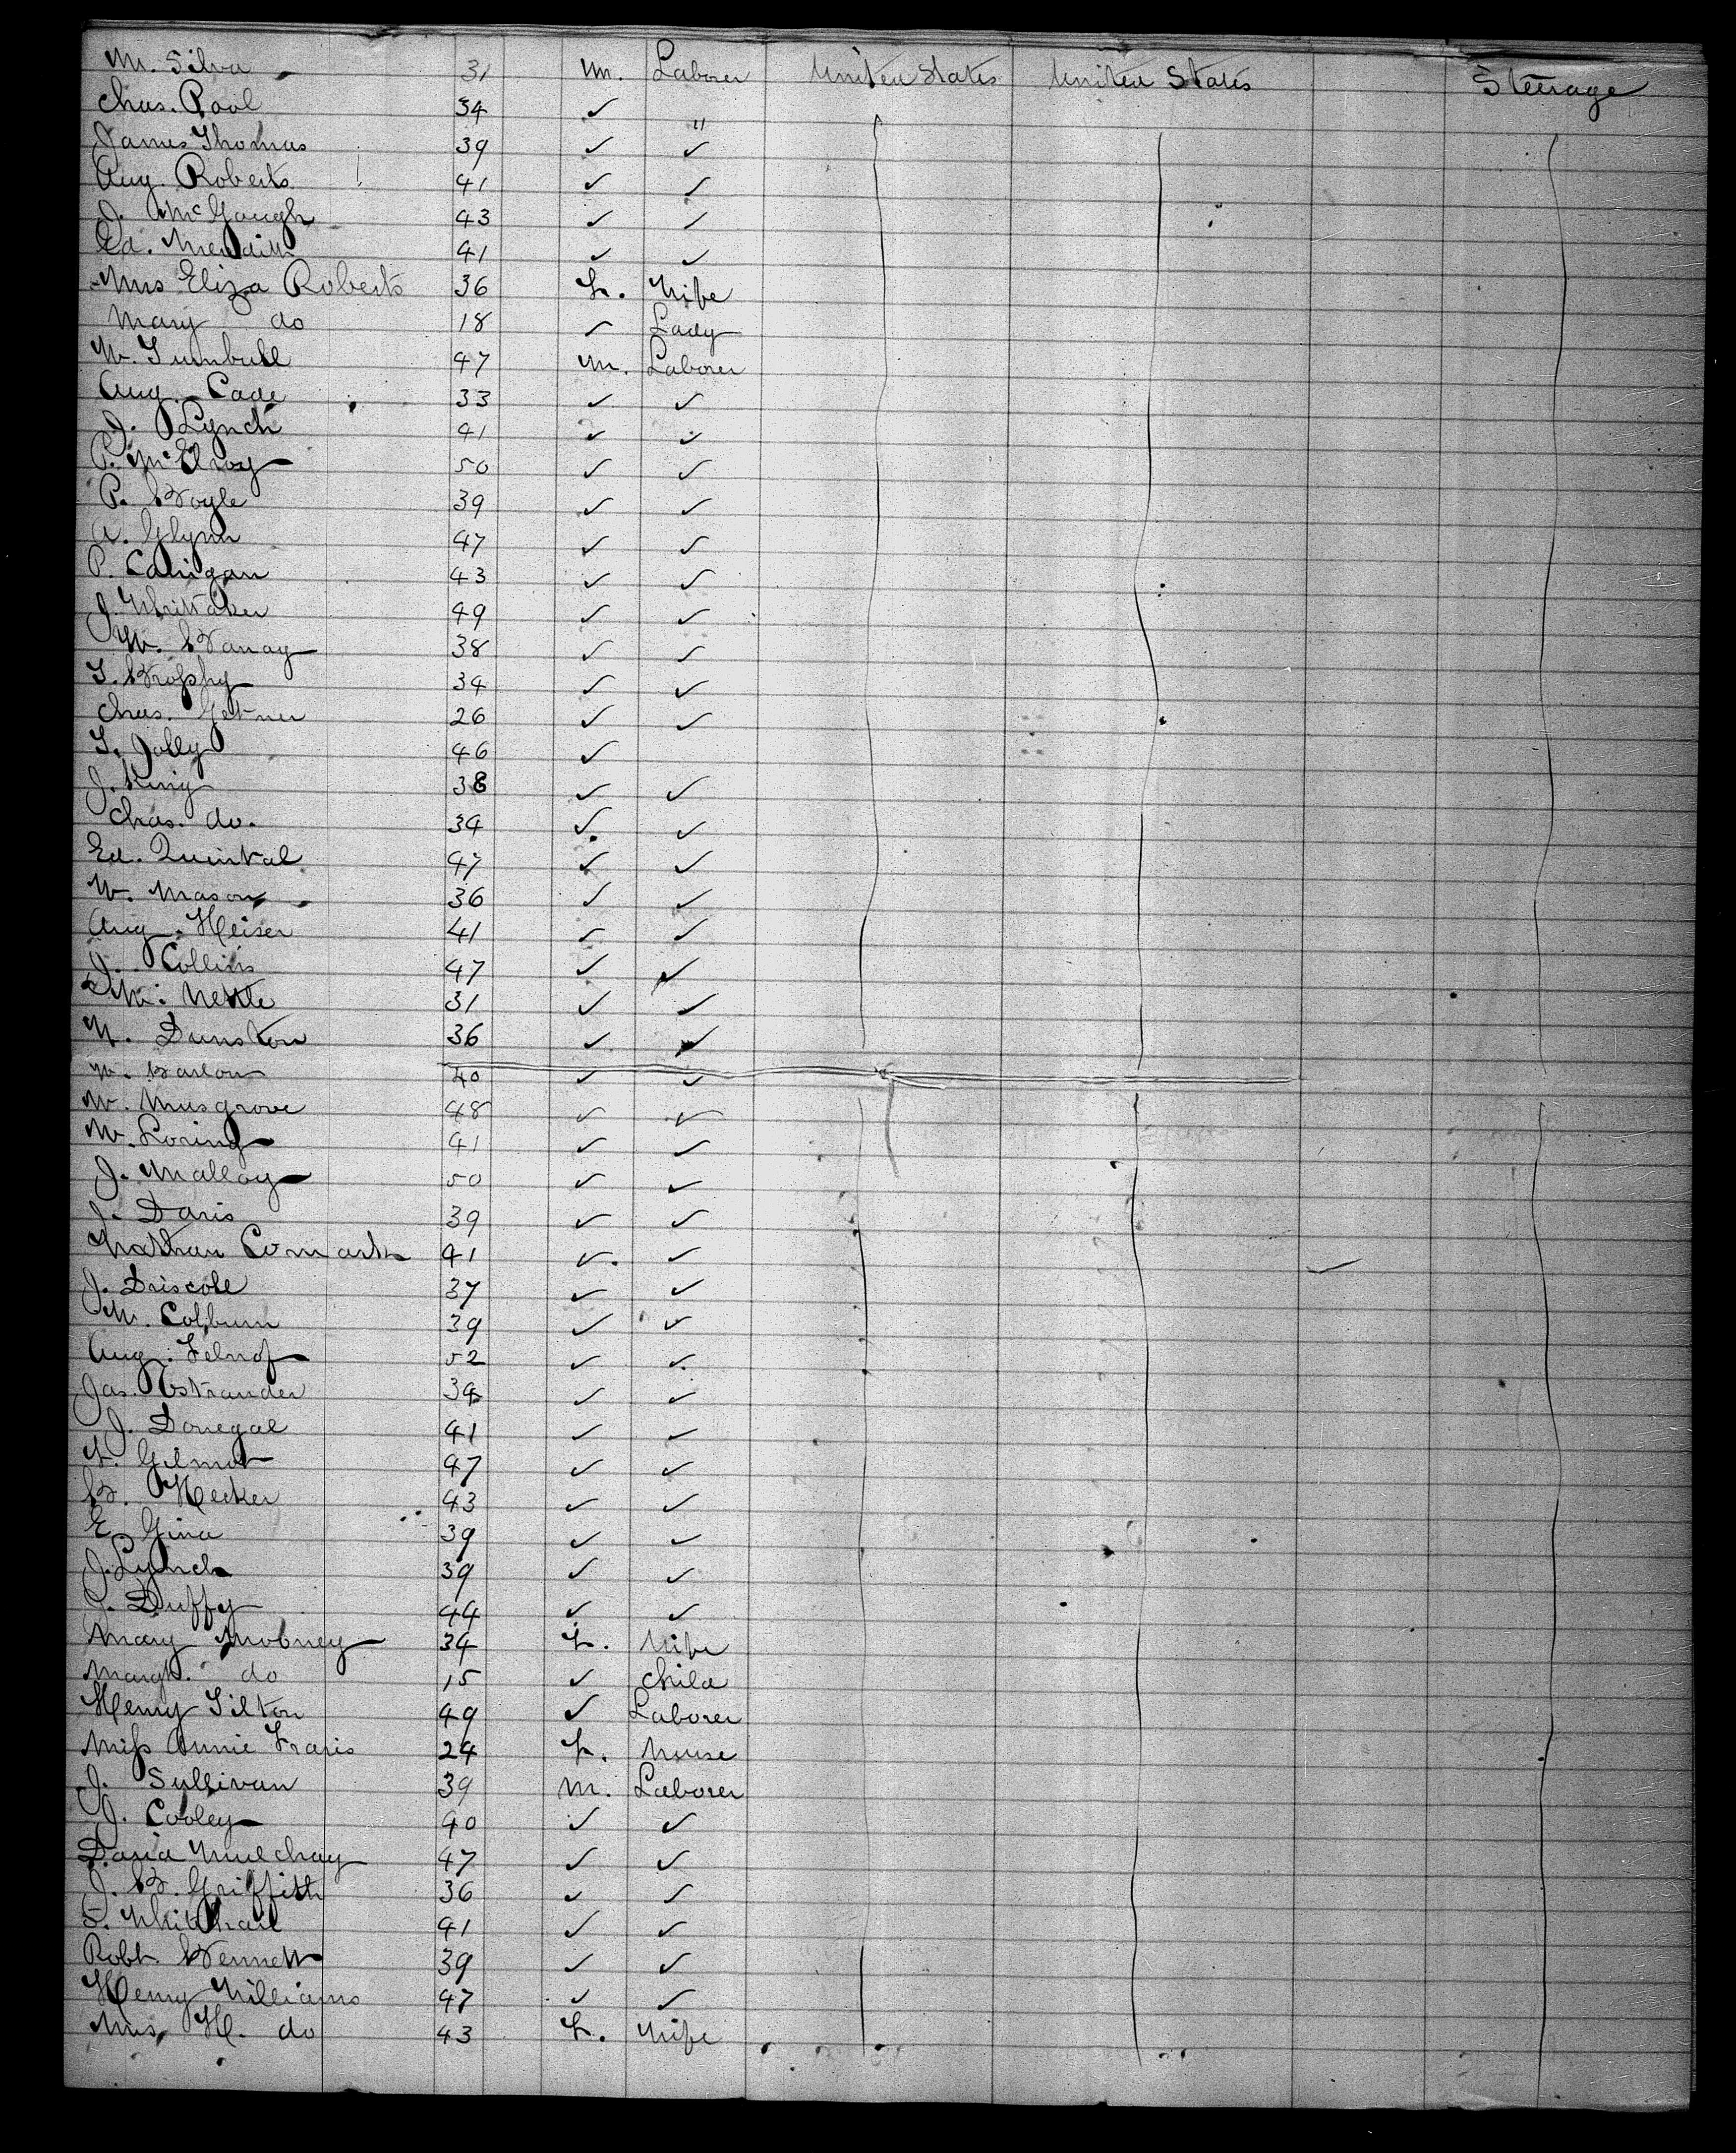 M. Silva 31 M. Laborer United States United States Steerage
Chas. Pool 34 ✓ "
James Thomas 39 ✓ ✓
Aug. Roberts 41 ✓ ✓
J. McGough 43 ✓ ✓
Ed. Meredith 41 ✓ ✓
Mrs Eliza Roberts 36 F. Wife
Mary do 18 ✓ Lady
W. Turnbull 47 M. Laborer
Aug. Cade 33 ✓ ✓
J. Lynch 41 ✓ ✓
P. McElroy 50 ✓ ✓
P. Boyle 39 ✓ ✓
A. Glynn 47 ✓ ✓
P. Carrigan 43 ✓ ✓
J. Whittaker 49 ✓ ✓
W. 38 ✓ ✓
T. Brophy 34 ✓ ✓
Chas. Getner 26 ✓ ✓
T. Jolly 46 ✓
J. King 38 ✓ ✓
Chas. do. 34 ✓ ✓
Ed. Quintal 47 ✓ ✓
W. Mason 36 ✓ ✓
Aug. Heiser 41 ✓ ✓
J. Collins 47 ✓ ✓
W. Nettle 31 ✓ ✓
W. Dunston 36 ✓ ✓
W. Barlow 40 ✓ ✓
W. Musgrove 48 ✓ ✓
W. Loring 41 ✓ ✓
J. Malloy 50 ✓ ✓
J. Davis 39 ✓ ✓
Nathan 41 ✓ ✓
J. Driscole 37 ✓ ✓
W. Colburn 39 ✓ ✓
Aug. 52 ✓ ✓
Jas. Ostrander 34 ✓ ✓
J. Donegal 41 ✓ ✓
Gilmot 47 ✓ ✓
B. Hecker 43 ✓ ✓
E. Gina 39 ✓ ✓
J. Lynch 39 ✓ ✓
J. Duffy 44 ✓ ✓
Mary Mobney 34 F. Wife
Margt. do 15 ✓ Child
Henry Tilton 49 ✓ Laborer
Miss Annie Travis 24 F. Nurse
J. Sullivan 39 M. Laborer
J. Cooley 40 ✓ ✓
David Mulchay 47 ✓ ✓
J. B. Griffith 36 ✓ ✓
41 ✓ ✓
Robt. Bennett 39 ✓ ✓
Henry Williams 47 ✓ ✓
Mrs H. do 43 F. Wife